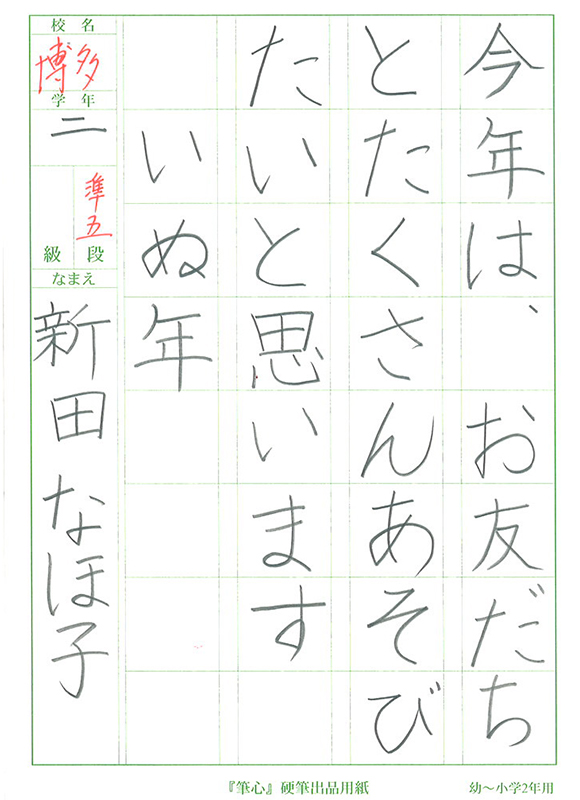 今年は、お友だち
とたくさんあそび
たいと思います
いぬ年
校名
博多
学年
二
準五
級段
なまえ
新田なほ子
『筆心』硬筆出品用紙
幼〜小学2年用